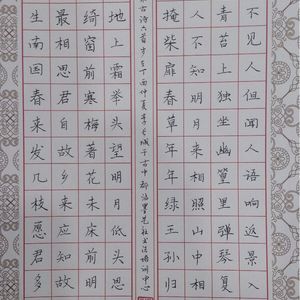 不见人但闻人语响返景入
青苔上独坐幽篁里弹琴复
人不知明月来相照山中相
掩柴扉春草年年绿王孙归
古诗六首岁在丁酉仲夏李长城于古中都书法培训中心
地上霜举头望明月低头思
绮窗前寒梅著花未床前明
最相思君自故乡来应知故
生南国春来发几枝愿君多